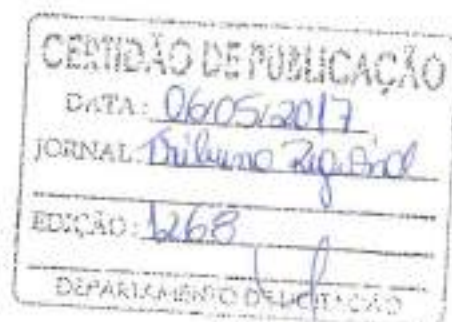 CERTIDÃO DE PUBLICAÇÃO
DATA: 06/05/2017
JORNAL: Tribuna Regional
EDIÇÃO: 1268
DEPARTAMENTO DE LICITAÇÃO